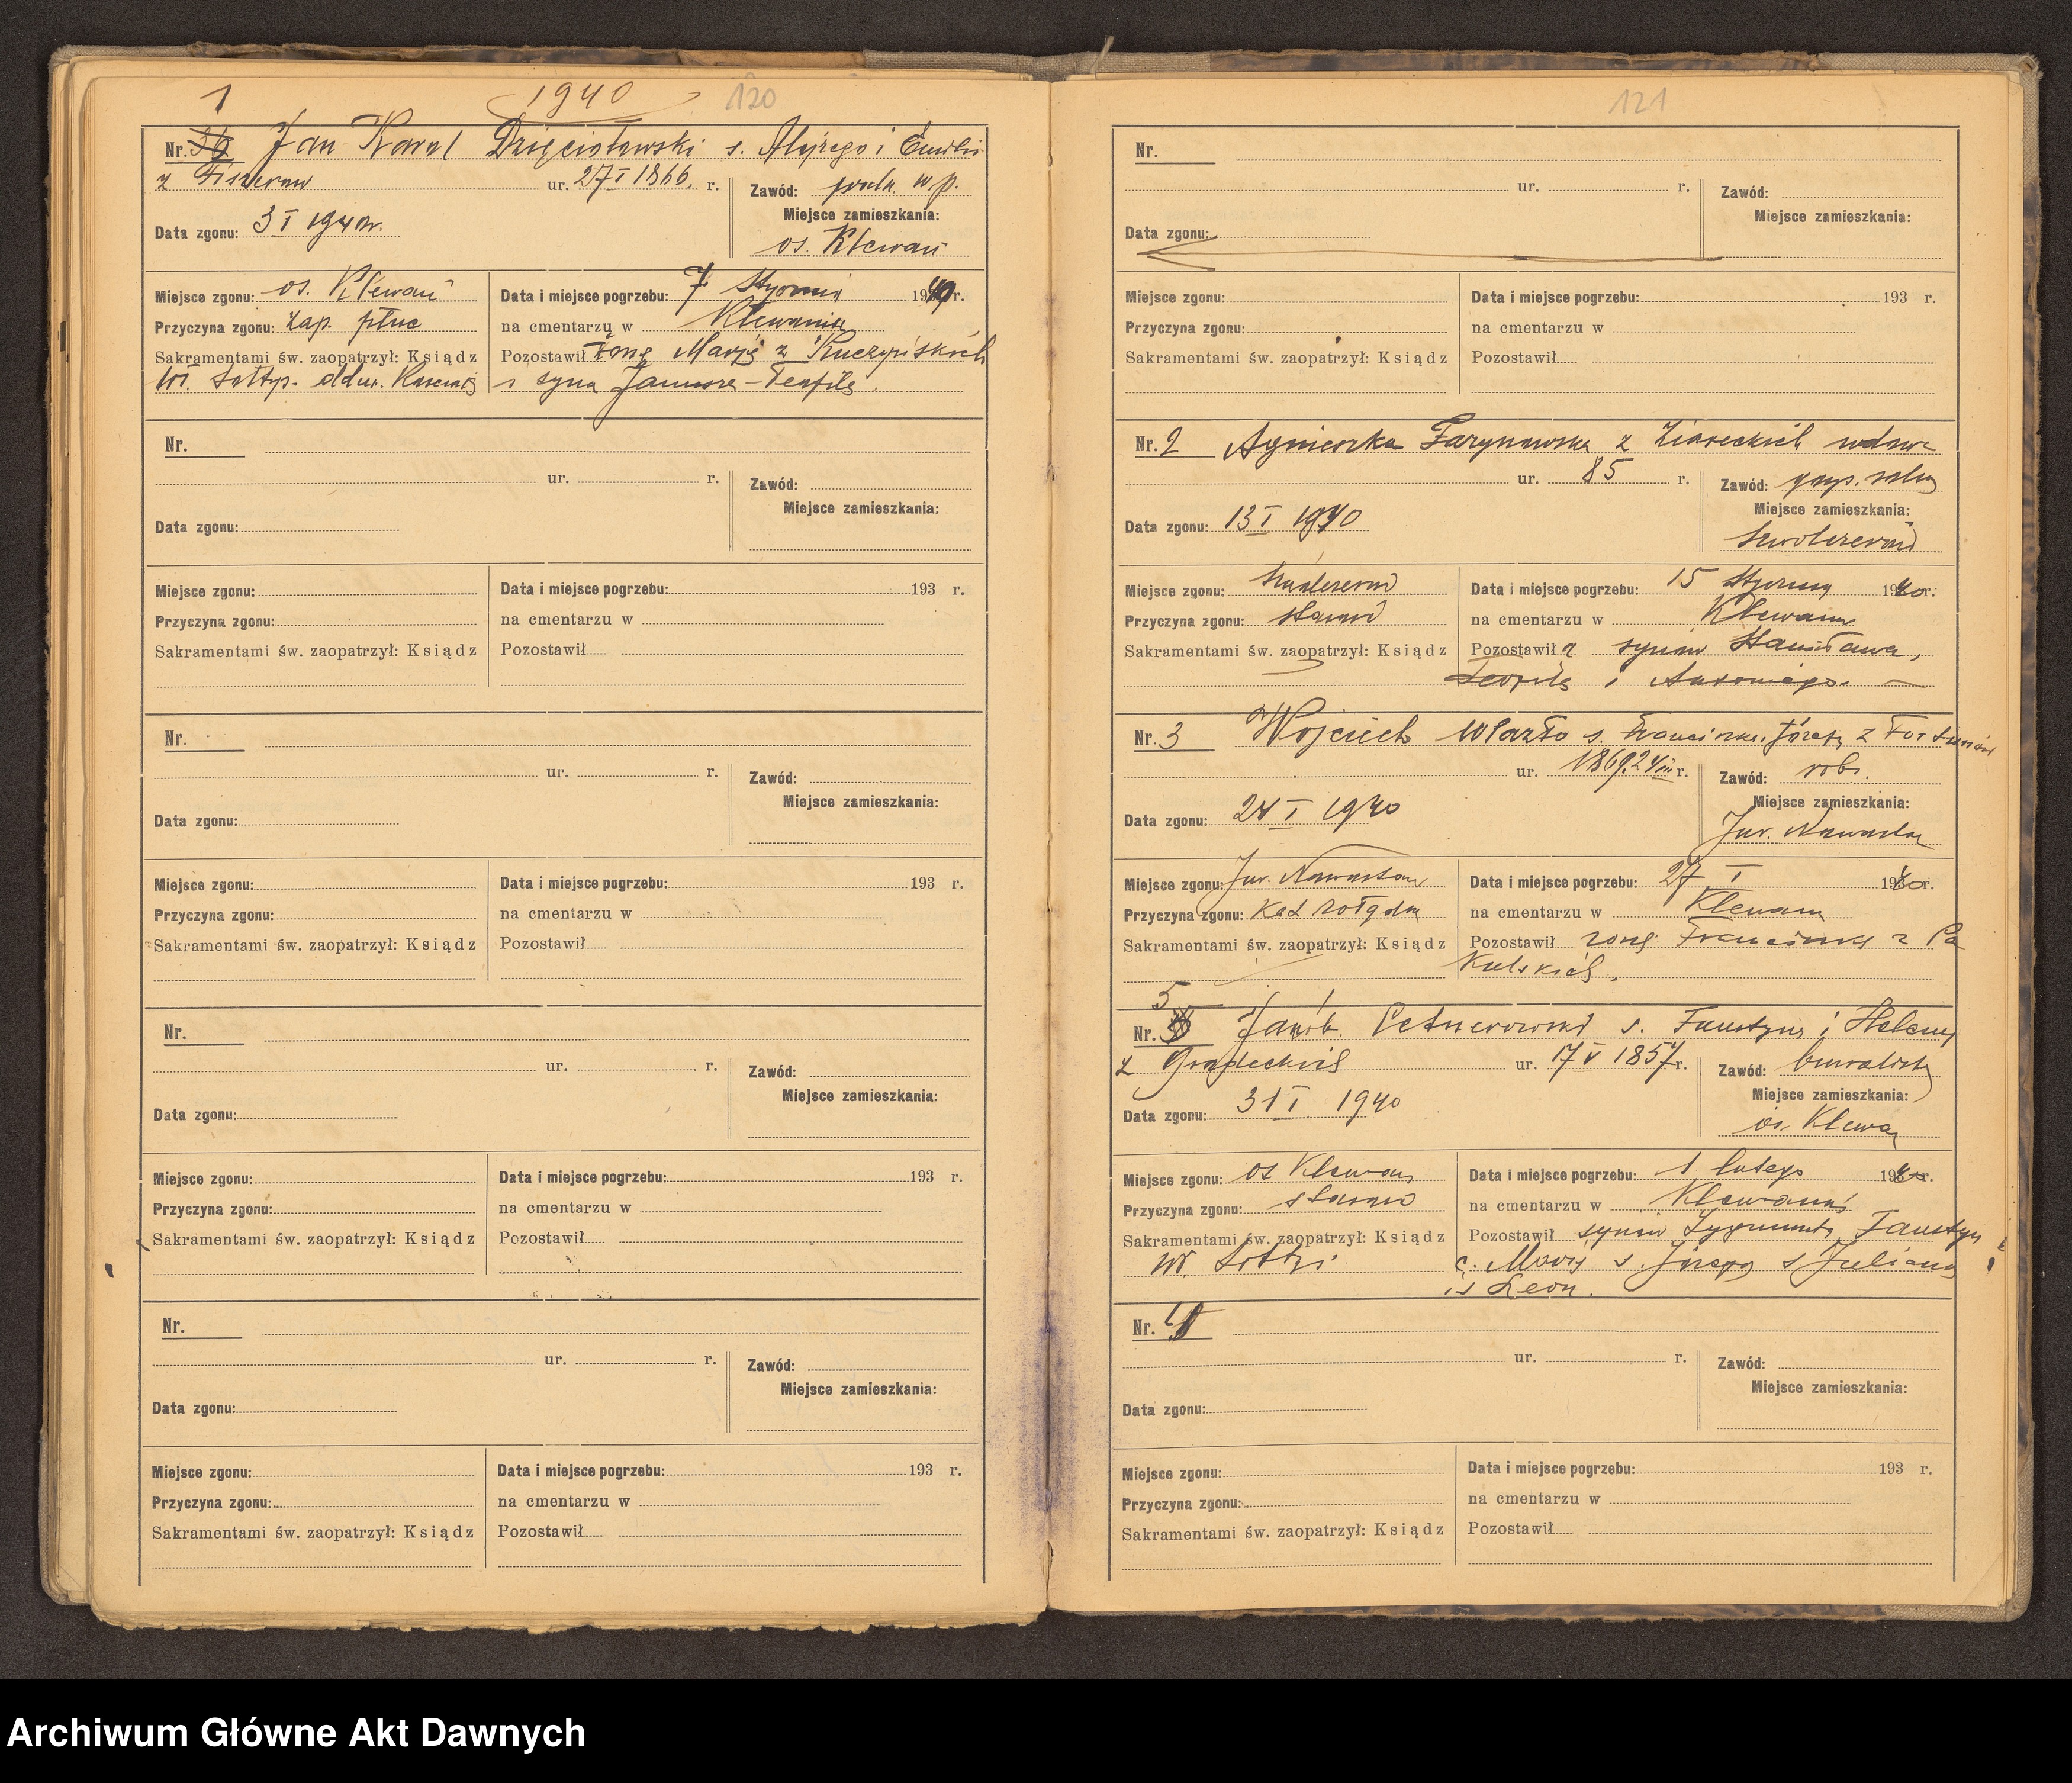 1 1940 120
Nr. 36 Jan Karol Dzięciołowski s. Alojzego i Emilii
z Fiszerów ur. 27 I 1866. r. Zawód: w p.
Miejsce zamieszkania:
Data zgonu: 3 I 1940 r. os. Klewań
Miejsce zgonu: os. Klewań Data i miejsce pogrzebu: 7 Stycznia 1940 r.
Przyczyna zgonu: zap. płuc na cmentarzu w Klewaniu
Sakramentami św. zaopatrzył: Ksiądz Pozostawił żonę Marję z Ruczyńskich
Wł. i syna Janusza-Teofila.
Nr.
ur. r. Zawód:
Miejsce zamieszkania:
Data zgonu:
Miejsce zgonu: Data i miejsce pogrzebu: 193 r.
Przyczyna zgonu: na cmentarzu w
Sakramentami św. zaopatrzył: Ksiądz Pozostawił
Nr.
ur. r. Zawód:
Miejsce zamieszkania:
Data zgonu:
Miejsce zgonu: Data i miejsce pogrzebu: 193 r.
Przyczyna zgonu: na cmentarzu w
Sakramentami św. zaopatrzył: Ksiądz Pozostawił
Nr.
ur. r. Zawód:
Miejsce zamieszkania:
Data zgonu:
Miejsce zgonu: Data i miejsce pogrzebu: 193 r.
Przyczyna zgonu: na cmentarzu w
Sakramentami św. zaopatrzył: Ksiądz Pozostawił
Nr.
ur. r. Zawód:
Miejsce zamieszkania:
Data zgonu:
Miejsce zgonu: Data i miejsce pogrzebu: 193 r.
Przyczyna zgonu: na cmentarzu w
Sakramentami św. zaopatrzył: Ksiądz Pozostawił
121
Nr.
ur. r. Zawód:
Miejsce zamieszkania:
Data zgonu:
Miejsce zgonu: Data i miejsce pogrzebu: 193 r.
Przyczyna zgonu: na cmentarzu w
Sakramentami św. zaopatrzył: Ksiądz Pozostawił
Nr. 2 Agnieszka z wdowa
ur. 85 r. Zawód:
Miejsce zamieszkania:
Data zgonu: 13 I 1940
Miejsce zgonu: Data i miejsce pogrzebu: 15 Stycznia 1940 r.
Przyczyna zgonu: starość na cmentarzu w Klewaniu
Sakramentami św. zaopatrzył: Ksiądz Pozostawiła synów Stanisława,
Teofila i Antoniego.
Nr. 3 Wojciech Wlazło s. Franciszka i Józefy z Fortunów
ur. 1869 24 r. Zawód: rob.
Miejsce zamieszkania:
Data zgonu: 24 I 1940 Jur. Nowostaw
Miejsce zgonu: Jur. Nowostaw Data i miejsce pogrzebu: 27 I 1940 r.
Przyczyna zgonu: Kat żołądka na cmentarzu w Klewaniu
Sakramentami św. zaopatrzył: Ksiądz Pozostawił żonę Franciszkę z Pa
kulskich.
5
Nr. Jakób s. Faustyna i Heleny
z Gródeckich ur. 17 V 1857 r. Zawód:
Miejsce zamieszkania:
Data zgonu: 31 I 1940 os. Klewań
Miejsce zgonu: os Klewań Data i miejsce pogrzebu: 1 lutego 1940 r.
Przyczyna zgonu: starość na cmentarzu w Klewaniu
Sakramentami św. zaopatrzył: Ksiądz Pozostawił synów Zygmunta, Faustyn
Wł. c. Marję s. Józefa s Juliana
i s Leon.
Nr. 4
ur. r. Zawód:
Miejsce zamieszkania:
Data zgonu:
Miejsce zgonu: Data i miejsce pogrzebu: 193 r.
Przyczyna zgonu: na cmentarzu w
Sakramentami św. zaopatrzył: Ksiądz Pozostawił
Archiwum Główne Akt Dawnych